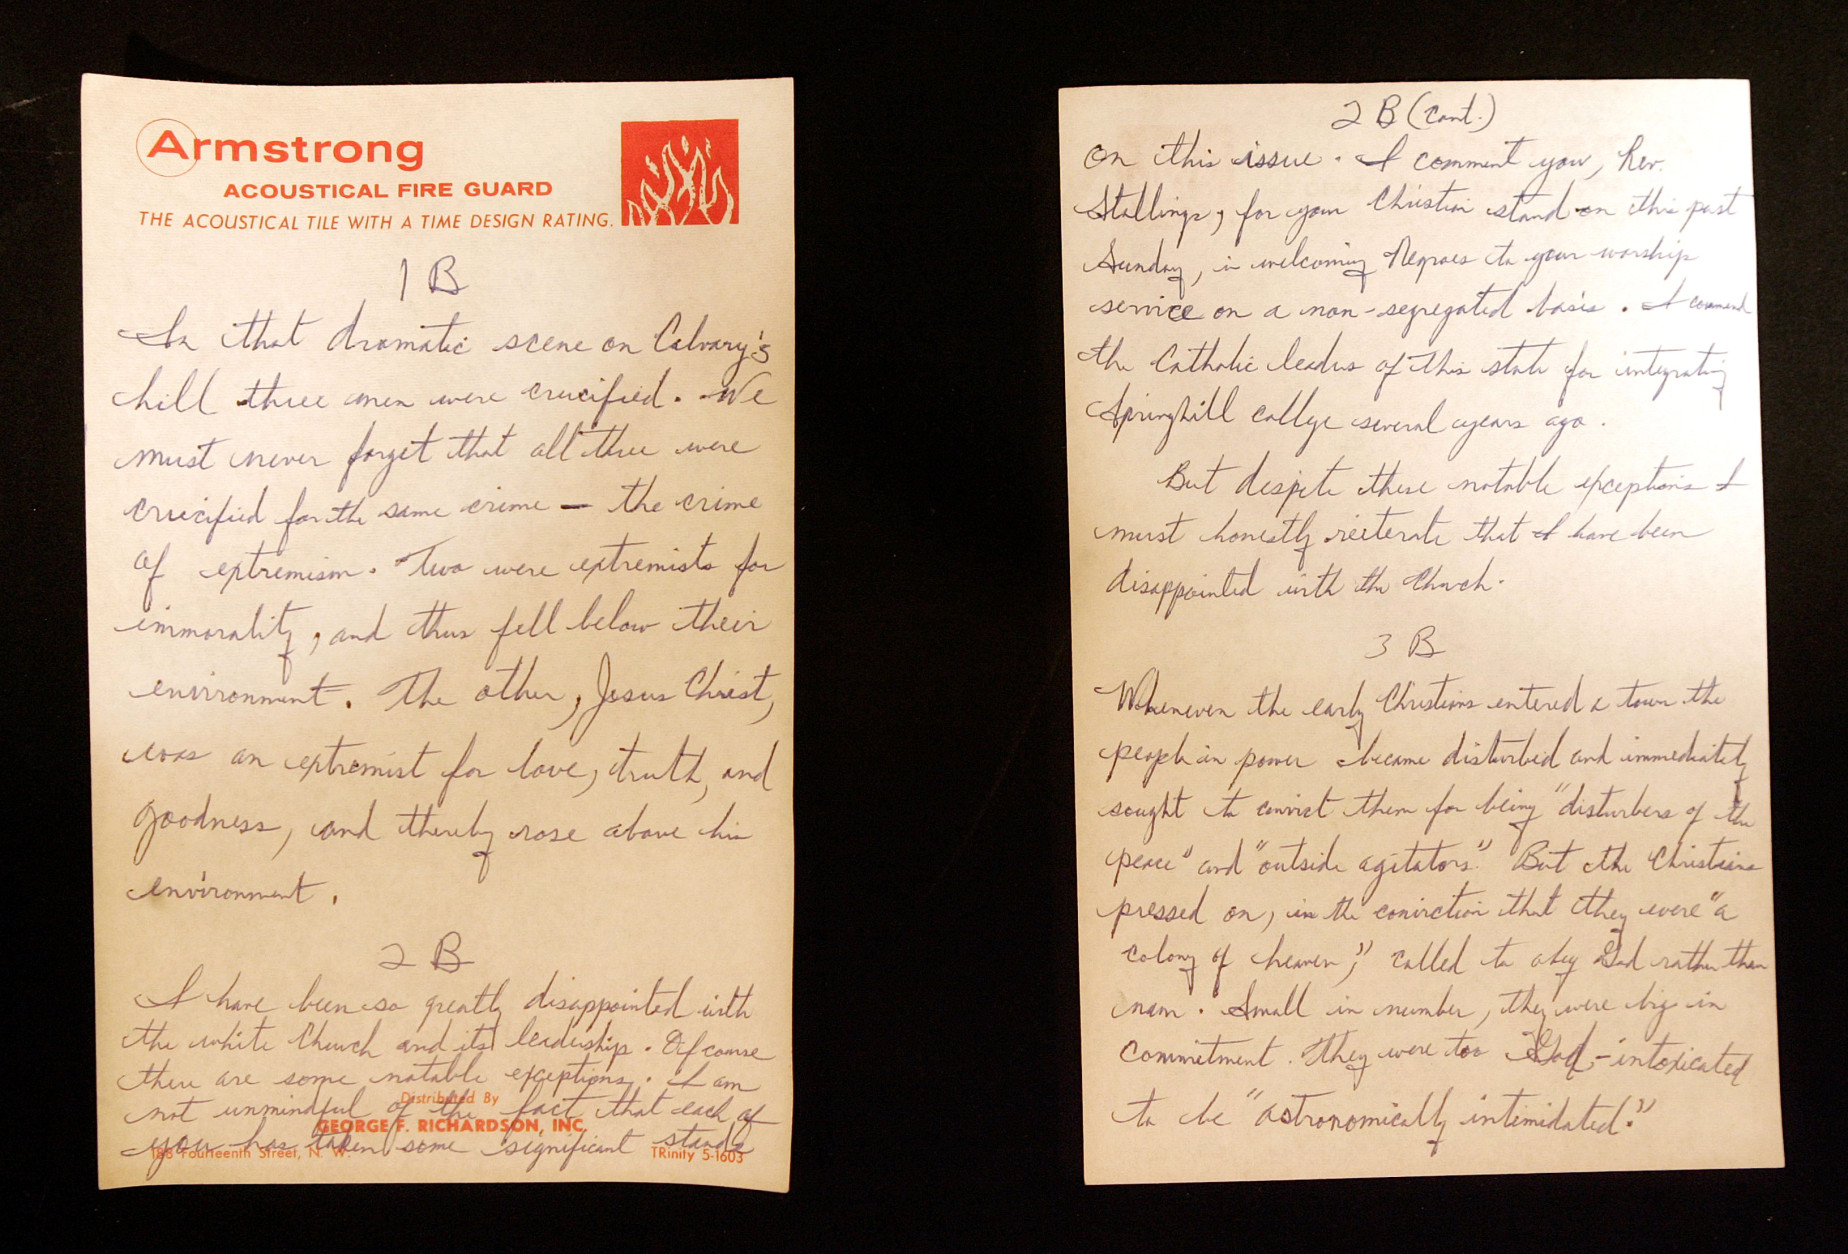 Armstrong
ACOUSTICAL FIRE GUARD
THE ACOUSTICAL TILE WITH A TIME DESIGN RATING.
1 B
In that dramatic scene on Calvary's
hill three men were crucified. We
must never forget that all three were
crucified for the same crime — the crime
of extremism. Two were extremists for
immorality, and thus fell below their
environment. The other, Jesus Christ,
was an extremist for love, truth, and
goodness, and thereby rose above his
environment.
2 B
I have been so greatly disappointed with
the white Church and its leadership. Of course
there are some notable exceptions. I am
not unmindful of the fact that each of
you has taken some significant stands
Distributed By
GEORGE F. RICHARDSON, INC.
188 Fourteenth Street, N. W.
TRinity 5-1603
2 B (Cont.)
on this issue. I comment you, Rev.
Stallings, for your Christian stand on this past
Sunday, in welcoming Negroes to your worship
service on a non-segregated basis. I commend
the Catholic leaders of this state for integrating
Springhill college several years ago.
But despite these notable exceptions I
must honestly reiterate that I have been
disappointed with the Church.
3 B
Whenever the early Christians entered a town the
people in power became disturbed and immediately
sought to convict them for being "disturbers of the
peace" and "outside agitators." But the Christians
pressed on, in the conviction that they were "a
colony of heaven," called to obey God rather than
man. Small in number, they were big in
commitment. They were too God-intoxicated
to be "astronomically intimidated."